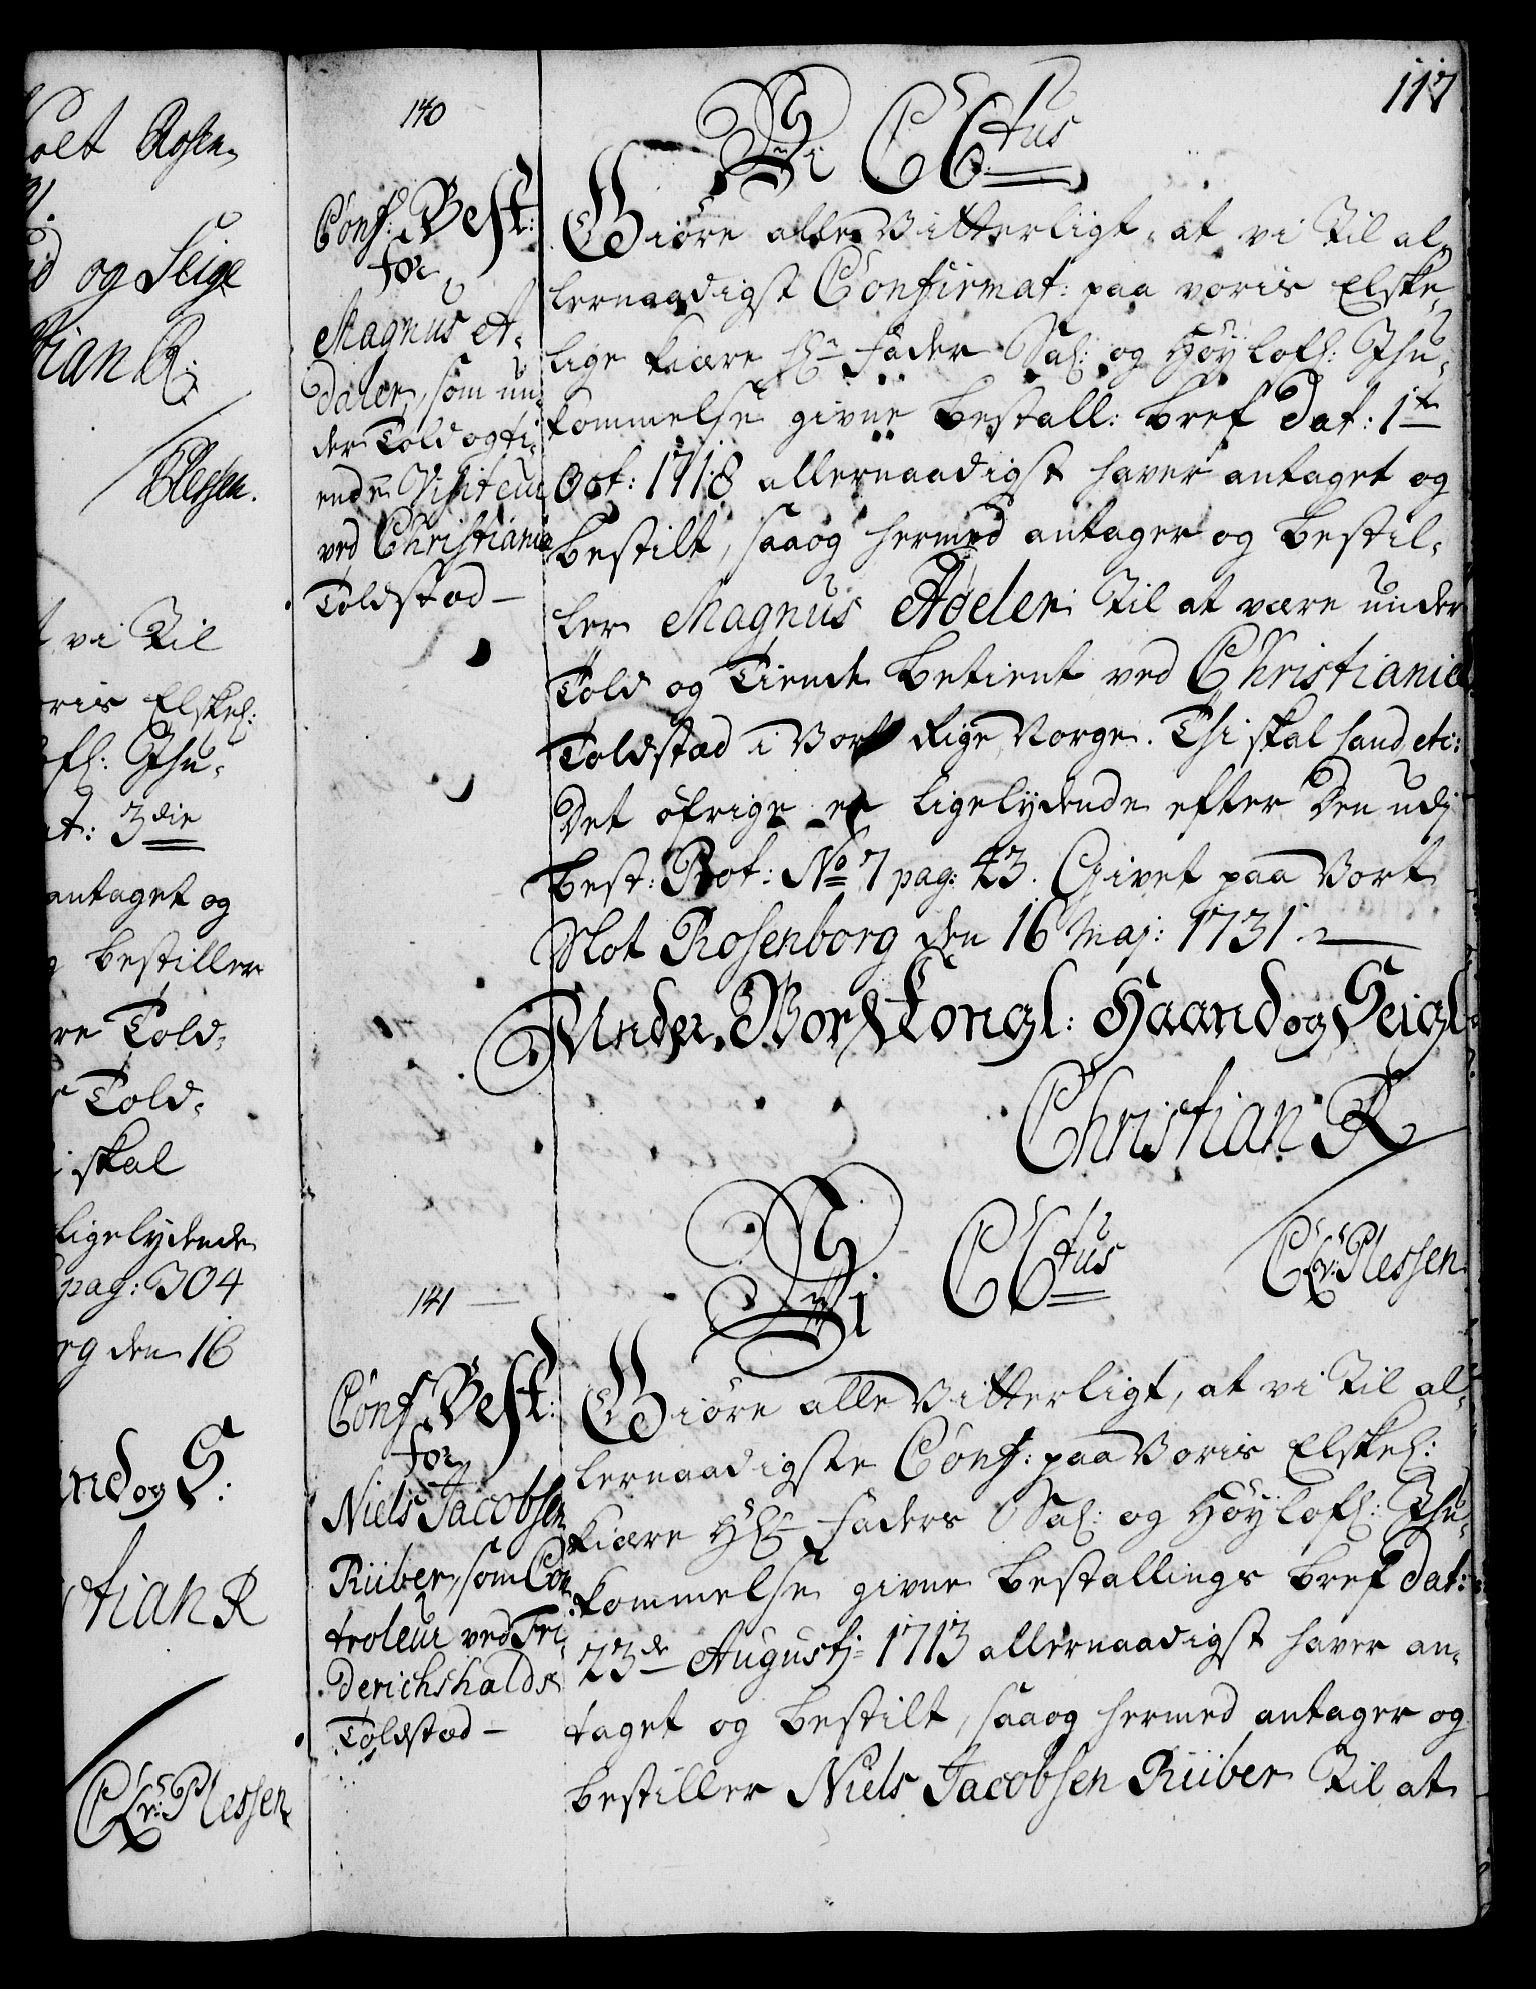 117
olt Rosen
31.
nd og Seigl
tian R:
Plessen.
t vi Til
oris Elskel:
ofl: Ihu-
at: 3die
antaget og
g bestiller
re Told-
r Told-
i skal
ligelydende
pag: 304
rg den 16
and og S:
stian R
C: Er: v: Plessen
140
Conf: Best:
for
Magnus A-
daler, som un-
der Told og Ti-
ende Visiteur
ved Christiania
Toldstæd —
Vi C6tus
Giöre alle Vitterligt, at vi Til al-
lernaadigst Confirmat: paa voris Elske-
lige kiære Hr Fader Sal: og Höylofl: Ihu-
kommelse givne Bestall: bref dat: 1te
Oct: 1718 allernaadigst haver antaget og
bestilt, saa og hermed antager og bestil-
ler Magnus Adeler Til at være under
Told og Tiende betient ved Christiania
Toldstæd i Vort Rige Norge. Thi skal hand etc:
Det öfrige er ligelydende efter Den udj
Best: Prot: No 7 pag: 43. Givet paa Vort
Slot Rosenborg den 16 Maj: 1731.
Under Vor Kongl: Haand og Seigl
Christian R
C: Er: v: Plessen
141
Conf: Best:
for
Niels Jacobsen
Riiber, som Con-
troleur ved Fri-
derichshalds
Toldstæd —
Vi C6tus
Giöre alle Vitterligt, at vi Til al-
lernaadigste Conf: paa Voris Elskel:
kiære Hr Faders Sal: og Höylofl: Ihu-
kommelse givne Bestallings bref dat:
23de Augustj 1713 allernaadigst haver an-
taget og bestilt, saa og hermed antager og
bestiller Niels Jacobsen Riiber Til at